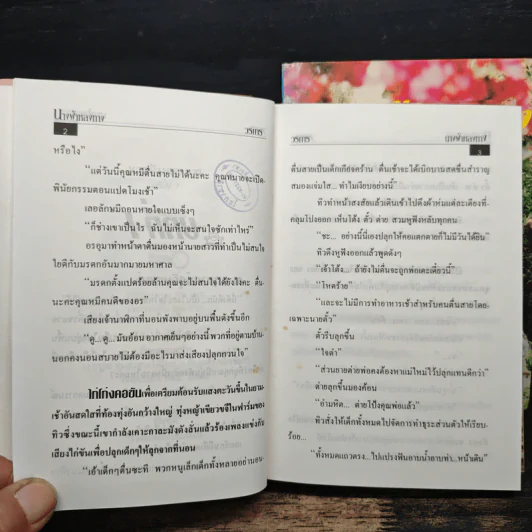 2
วรการ
หรือไง”
“แต่วันนี้คุณหมีตื่นสายไม่ได้นะคะ คุณทนายจะเปิด-
พินัยกรรมตอนแปดโมงเช้า”
เลอลักษมีถอนหายใจแบบเซ็งๆ
“ก็ช่างเขาเป็นไร ฉันไม่เห็นจะสนใจซักเท่าไหร่”
อรอุมาทำหน้าคาดตื่นมองหน้านายสาวที่ทำเป็นไม่สนใจ
ไยดีกับมรดกอันมากมายมหาศาล
“มรดกตั้งแปดร้อยล้านคุณจะไม่สนใจได้ยังไงคะ ตื่น-
นะคะคุณหมีคนดีของอร”
เสียงเจ้านาฬิกาที่นอนพังพาบอยู่บนพื้นดังขึ้นอีก
“ดู...ดู...มันอ้อน อากาศเย็นๆอย่างนี้ พวกที่อยู่ตามบ้าน-
นอกคงนอนสบายไม่ต้องมีอะไรมาส่งเสียงปลุกกวนใจ”
ไก่โก่งคอขันเพื่อเตรียมต้อนรับแสงตะวันขึ้นในยาม-
เช้าอันสดใสที่ท้องทุ่งอันกว้างใหญ่ ทุ่งหญ้าเขียวขจีในฟาร์มของ
ทิวซึ่งขณะนี้เขากำลังเคาะกาละมังดังลั่นแล้วร้องเพลงแข่งกับ
เสียงไก่ขันเพื่อปลุกเด็กๆให้ลุกจากที่นอน
“เฮ้าเด็กๆตื่นซะที พวกหนูเล็กเด็กทั้งหลายอย่านอน-
วรการ
3
ตื่นสายเป็นเด็กเกียจคร้าน ตื่นเช้าจะได้เบิกบานสดชื่นสำราญ
สมองแจ่มใส... ทำไมเงียบอย่างนี้”
ทิวทำหน้าสงสัยแล้วเดินเข้าไปดึงผ้าห่มแต่ละเตียงที่-
คลุมโปงออก เห็นโต้ง ตั้ว ต่าย สวมหูฟังหลับทุกคน
“ชะ... อย่างนี้นี่เองปลุกให้คอแตกตายก็ไม่มีวันได้ยิน”
ทิวดึงหูฟังออกแล้วพูดดังๆ
“เจ้าโต้ง... ถ้ายังไม่ตื่นจะถูกพ่อเตะเดี๋ยวนี้”
“โหดร้าย”
“และจะไม่มีการทำอาหารเช้าสำหรับคนตื่นสายโดย-
เฉพาะนายตั้ว”
ตั้วรีบลุกขึ้น
“ใจดำ”
“ส่วนยายต่ายพ่อคงต้องหาแม่ใหม่ไว้ปลุกแทนดีกว่า”
ต่ายลุกขึ้นมองค้อน
“อำมหิต... ต่ายโป้งคุณพ่อแล้ว”
ทิวสั่งให้เด็กทั้งหมดไปจัดการทำธุระส่วนตัวให้เรียบ-
ร้อย...
“ทั้งหมดแถวตรง... ไปแปรงฟันอาบน้ำอาบท่า...หน้าเดิน”